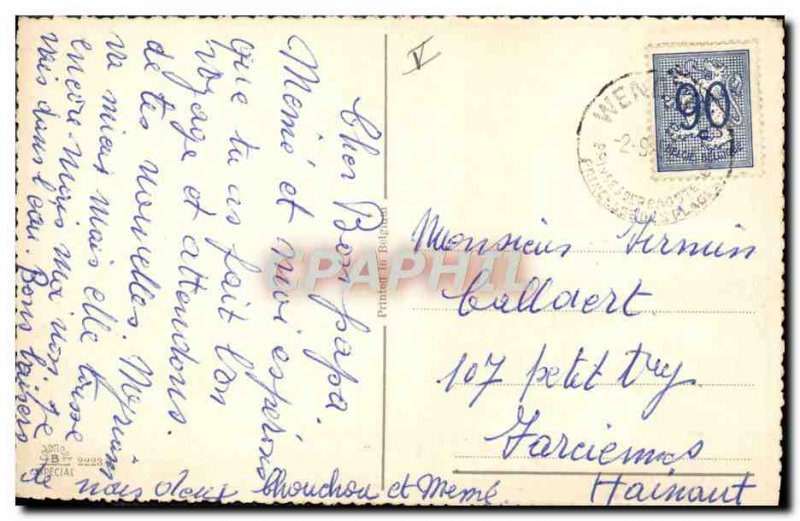 Cher Bon papa.
Mémé et moi espérons
que tu as fait bon
voyage et attendons
de tes nouvelles. Myriam
va mieux mais elle tousse
encore mais moi non. Je
vais dans l'eau. Bons baisers
de nous deux Chouchou et Mémé.
V
WEN
-2-
90
BELGIE-BELGIQUE
Monsieur Firmin
Callaert
107 petit try
Farciennes
Hainaut
Printed in Belgium
B
SPECIAL 2223
CPAPHIL